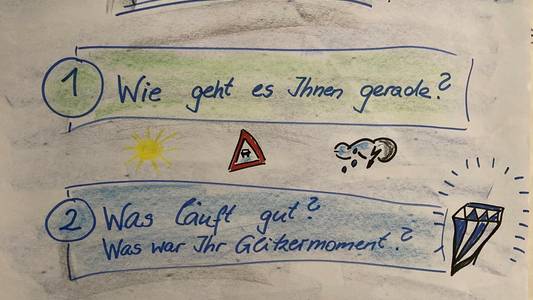 1 Wie geht es Ihnen gerade?
2 Was läuft gut?
Was war Ihr Glitzermoment?